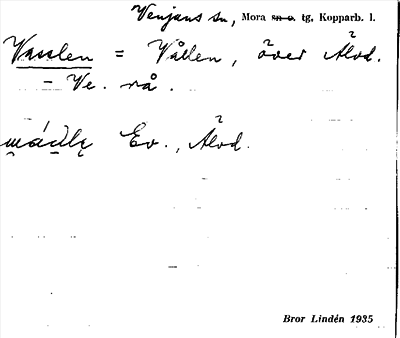 Venjans sn, Mora s̶n̶ ̶o̶.̶ tg, Kopparb. l.
Vasslen = Vållen, över Älvd.
- Ve. rå.
Ev., Älvd.
Bror Lindén 1935